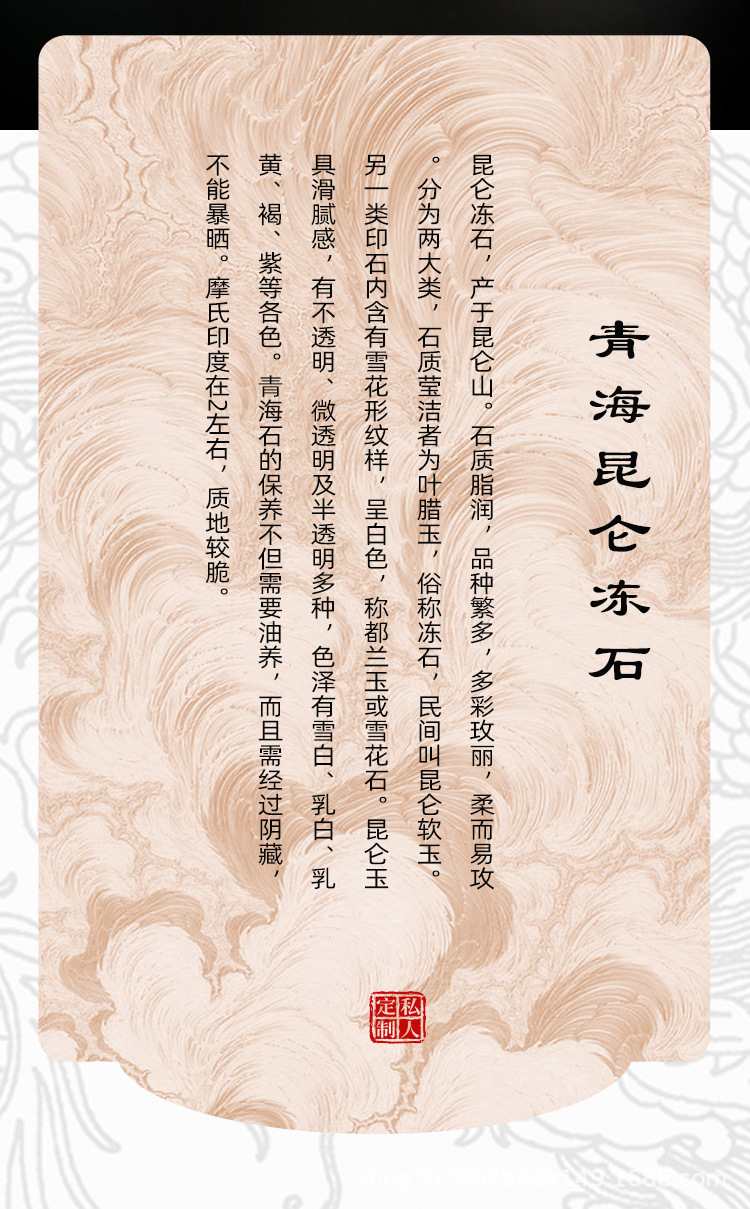 青海昆仑冻石
昆仑冻石，产于昆仑山。石质脂润，品种繁多，多彩玫丽，柔而易攻
。分为两大类，石质莹洁者为叶腊玉，俗称冻石，民间叫昆仑软玉。
另一类印石内含有雪花形纹样，呈白色，称都兰玉或雪花石。昆仑玉
具滑腻感，有不透明、微透明及半透明多种，色泽有雪白、乳白、乳
黄、褐、紫等各色。青海石的保养不但需要油养，而且需经过阴藏，
不能暴晒。摩氏印度在2左右，质地较脆。
私人
定制